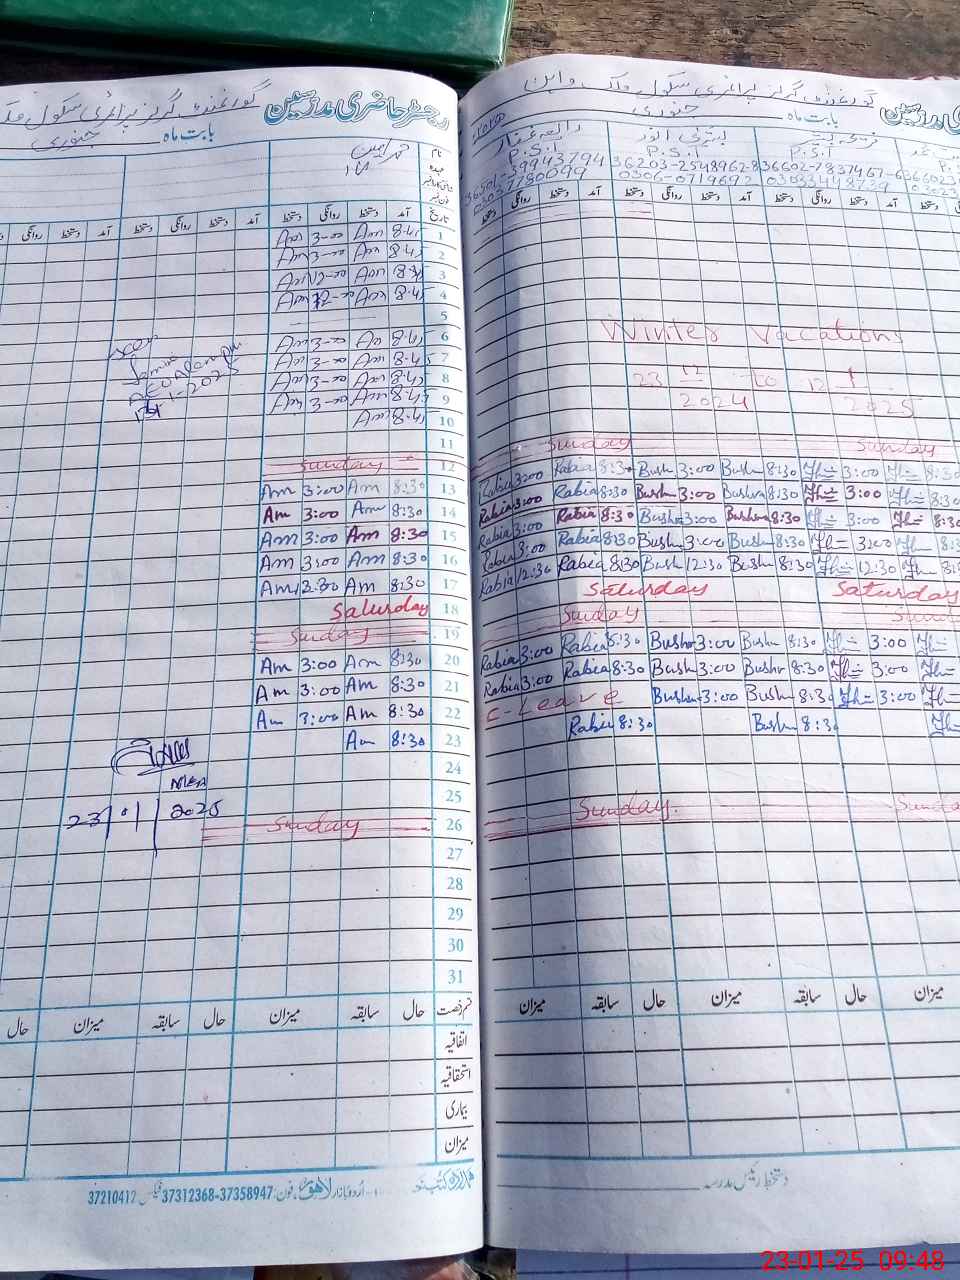 رجسٹر حاضری مدرسین
گورنمنٹ گرلز پرائمری سکول
بابت ماہ جنوری
نام
عہدہ
تاریخ
آمد دستخط روانگی دستخط آمد دستخط روانگی دستخط
1 8:45 Am 3-00 Am
2 8:45 Am 3-00 Am
3 8:45 Am 12-00 Am
4 8:45 Am 12-00 Am
5
6 8:45 Am 3-00 Am
7 8:45 Am 3-00 Am
8 8:45 Am 3-00 Am
9 8:45 Am 3-00 Am
10 8:45 Am
11
12 Sunday
13 8:30 Am 3:00 Am
14 8:30 Am 3:00 Am
15 8:30 Am 3:00 Am
16 8:30 Am 3:00 Am
17 8:30 Am 12:30 Am
18 Saturday
19 Sunday
20 8:30 Am 3:00 Am
21 8:30 Am 3:00 Am
22 8:30 Am 3:00 Am
23 8:30 Am
24
25
26 Sunday
27
28
29
30
31
-1-2025
23/01/2025
قسم رخصت حال سابقہ میزان حال سابقہ میزان حال
اتفاقیہ
استحقاقیہ
بیماری
میزان
اُردو بازار لاہور، فون: 37358947-37312368 فیکس 37210412
گورنمنٹ گرلز پرائمری سکول
بابت ماہ جنوری
P.S.T P.S.T P.S.T
36203-2548962-8 36602-7837467-6
03037780099 0306-0719692 03033448739
آمد دستخط روانگی دستخط آمد دستخط روانگی دستخط
Winter Vacations
23 12/2024 to 12 1/2025
Sunday Sunday
Rabia 3:00 Rabia 8:30 Bush 3:00 Bush 8:30 3:00 8:30
Rabia 3:00 Rabia 8:30 Bush 3:00 Bushra 8:30 3:00 8:30
Rabia 3:00 Rabia 8:30 Bush 3:00 Bushra 8:30 3:00 8:30
Rabia 3:00 Rabia 8:30 Bush 3:00 Bush 8:30 3:00
Rabia 12:30 Rabia 8:30 Bush 12:30 Bush 8:30 12:30
Saturday Saturday
Sunday Sunday
Rabia 3:00 Rabia 8:30 Bushr 3:00 Bush 8:30 3:00
Rabia 3:00 Rabia 8:30 Bush 3:00 Bushr 8:30 3:00
C-Leave Bush 3:00 Bush 8:30 3:00
Rabia 8:30 Bush 8:30
Sunday Sunday
حال سابقہ میزان حال سابقہ میزان
دستخط رئیس مدرسہ
23-01-25 09:48